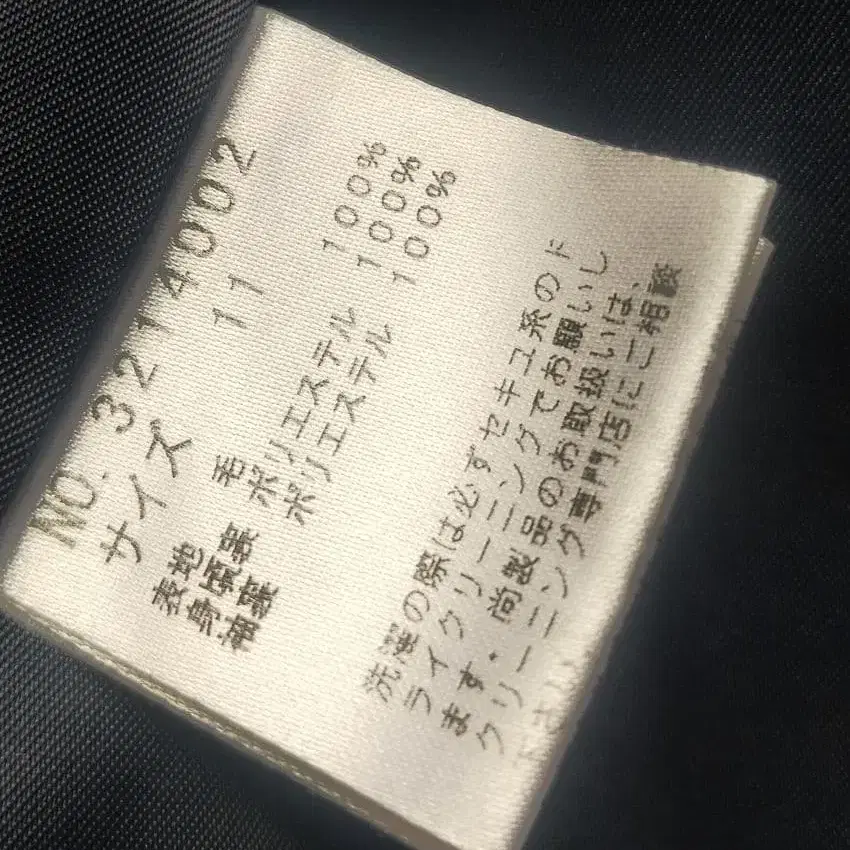 NO. 3214002
サイズ 11
表地 毛 100%
身頃裏 ポリエステル 100%
袖裏 ポリエステル 100%
洗濯の際は必ずセキユ系のド
ライクリーニングでお願いし
ます・尚製品のお取扱いは、
クリーニング専門店にご相談
下さい